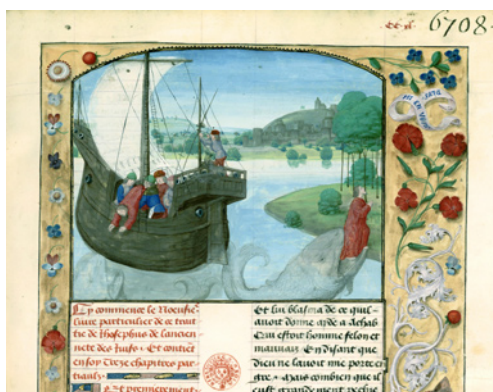 6708.
Cy commence le Noeufie
liure particulier de ce trait
tie de Ihosephus de lancien
nete des Juifs. Et contiet
en soy Treze chapitres par
tiaulx.
Et premierement
Et lui blasma de ce quil
auoit donne ayde a Achab
Qui estoit homme felon et
mauuais En disant que
dieu ne lauoit mie porte en
gre. Mais combien que il
eust grandement peche